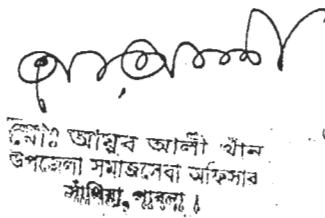 মোঃ আয়ুব আলী খাঁন
উপজেলা সমাজসেবা অফিসার
সাঁথিয়া, পাবনা।